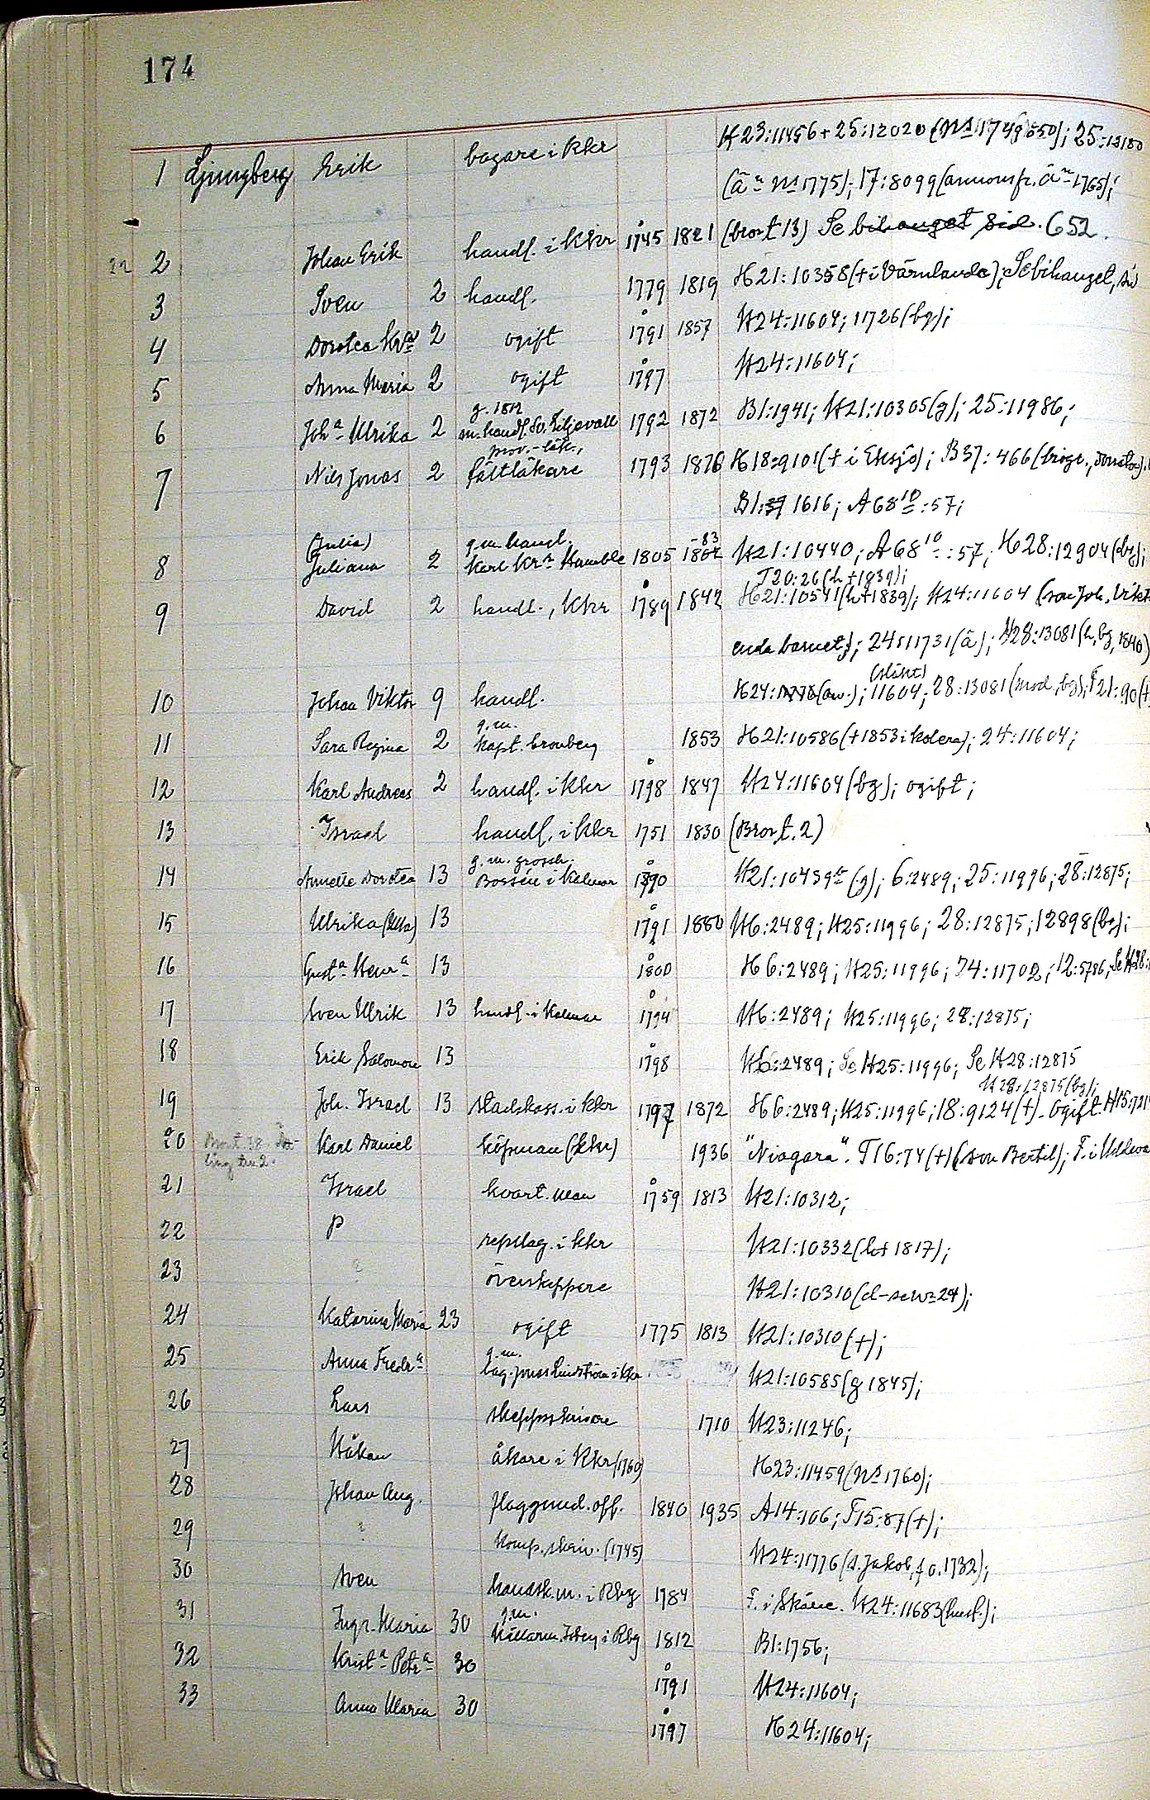 174
1 Ljungberg Erik bagare i Kkr H23:11456+25:12020 (
(ån 1775); 17:8099 (annons fr. ån 1765);
22 2 Johan Erik handl. i Kkr 1745 1821 (bror t. 13) Se bihanget sid. 652.
3 Sven 2 handl. 1779 1819 H21:10358 (+ i Värmland); Se bihanget,
4 Dorotea 2 ogift 1791 1857 H24:11604; 11726 (bg);
5 Anna Maria 2 ogift 1797 H24:11604;
g. 1812
6 Joha Ulrika 2 m. handl. Sv. Liljevall 1792 1872 B1:1941; H21:10305 (g); 25:11986;
prov.-läk.,
7 Nils Jonas 2 fältläkare 1793 1876 H18:9101 (+ i Eksjö); B37:466
B1: 1616; A6810:57;
(Julia) g.m. handl. -83
8 Juliana 2 Karl Krn Hamble 1805 H21:10440; A6810:57; H28:12904 (bg);
T20:26 (h +1839);
9 David 2 handl., Kkr 1789 1842 H21:10541 (h +1839); H24:11604 (son Joh. Vikt
enda barnet); 24:11731 (å); H28:13081 (h, bg, 1840)
(släkt)
10 Johan Viktor 9 handl. H24: (av.); 11604; 28:13081 (mod, bg); F21:90 (+
g.m.
11 Sara Regina 2 kapt. Cronberg 1853 H21:10586 (+1853 i kolera); 24:11604;
12 Karl Andreas 2 handl. i Kkr 1798 1847 H24:11604 (bg); ogift;
13 Israel handl. i Kkr 1751 1830 (Bror t. 2)
g.m. grossh.
14 Annette Dorotea 13 Bosséu i Kalmar 1790 H21:10439 (g); 6:2489; 25:11996; 28:12875;
15 Ulrika (Ulla) 13 1791 1880 H6:2489; H25:11996; 28:12875; 12898 (bg);
16 Gusta Henra 13 1800 H6:2489; H25:11996; 74:11702; 12:5786; Se H28:
17 Sven Ulrik 13 handl. i Kalmar 1794 H6:2489; H25:11996; 28:12875;
18 Erik Salomon 13 1798 H6:2489; Se H25:11996; Se H28:12875
H28:12875 (bg);
19 Joh. Israel 13 stadskass. i Kkr 1797 1872 H6:2489; H25:11996; 18:9124 (+). Ogift. H15:721
20 Karl Daniel köpman (Kkr) 1936 "Niagara". T16:74 (+) (son Bertil); F. i Uddeva
21 Israel kvart. man 1759 1813 H21:10312;
22 P repslag. i Kkr H21:10332 (h + 1817);
23 ? överskeppare H21:10310 (d - se nr 24);
24 Katarina Maria 23 ogift 1775 1813 H21:10310 (+);
g.m.
25 Anna Fredra låg. Jonas Lindström i Kkr H21:10585 (g 1845);
26 Lars skeppsskrivare 1710 H23:11246;
27 Håkan åkare i Kkr (1760) H23:11459 (nr 1760);
28 Johan Aug. flaggund.off. 1840 1935 A14:106; F15:87 (+);
29 ? komp.skriv. (1745) H24:11776 (s. Jakob, f o. 1732);
30 Sven handsk.m. i Rbg 1784 F. i Skåne. H24:11683 (hush.);
g.m.
31 Ingr. Maria 30 i Rbg 1812 B1:1756;
32 Krista Petra 30 1791 H24:11604;
33 Anna Maria 30 1797 H24:11604;